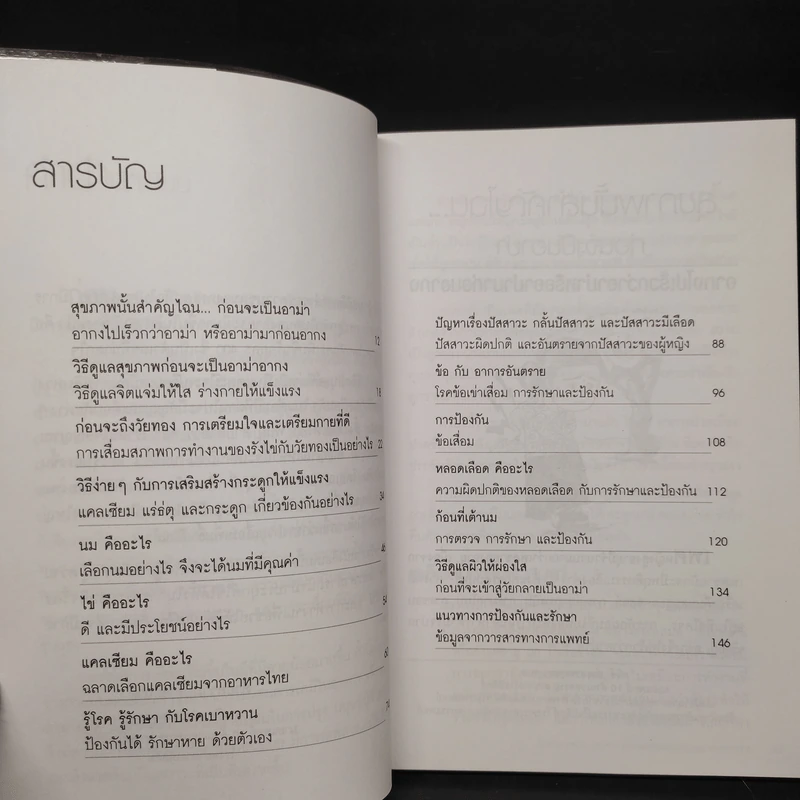 สารบัญ
สุขภาพนั้นสำคัญไฉน... ก่อนจะเป็นอาม่า
อากงไปเร็วกว่าอาม่า หรืออาม่ามาก่อนอากง 12
วิธีดูแลสุขภาพก่อนจะเป็นอาม่าอากง
วิธีดูแลจิตแจ่มให้ใส ร่างกายให้แข็งแรง 18
ก่อนจะถึงวัยทอง การเตรียมใจและเตรียมกายที่ดี
การเสื่อมสภาพการทำงานของรังไข่กับวัยทองเป็นอย่างไร 22
วิธีง่ายๆ กับการเสริมสร้างกระดูกให้แข็งแรง
แคลเซียม แร่ธาตุ และกระดูก เกี่ยวข้องกันอย่างไร 34
นม คืออะไร
เลือกนมอย่างไร จึงจะได้นมที่มีคุณค่า 46
ไข่ คืออะไร
ดี และมีประโยชน์อย่างไร 54
แคลเซียม คืออะไร
ฉลาดเลือกแคลเซียมจากอาหารไทย
รู้โรค รู้รักษา กับโรคเบาหวาน
ป้องกันได้ รักษาหาย ด้วยตัวเอง
ปัญหาเรื่องปัสสาวะ กลั้นปัสสาวะ และปัสสาวะมีเลือด
ปัสสาวะผิดปกติ และอันตรายจากปัสสาวะของผู้หญิง 88
ข้อ กับ อาการอันตราย
โรคข้อเข่าเสื่อม การรักษาและป้องกัน 96
การป้องกัน
ข้อเสื่อม 108
หลอดเลือด คืออะไร
ความผิดปกติของหลอดเลือด กับการรักษาและป้องกัน 112
ก้อนที่เต้านม
การตรวจ การรักษา และป้องกัน 120
วิธีดูแลผิวให้ผ่องใส
ก่อนที่จะเข้าสู่วัยกลายเป็นอาม่า 134
แนวทางการป้องกันและรักษา
ข้อมูลจากวารสารทางการแพทย์ 146